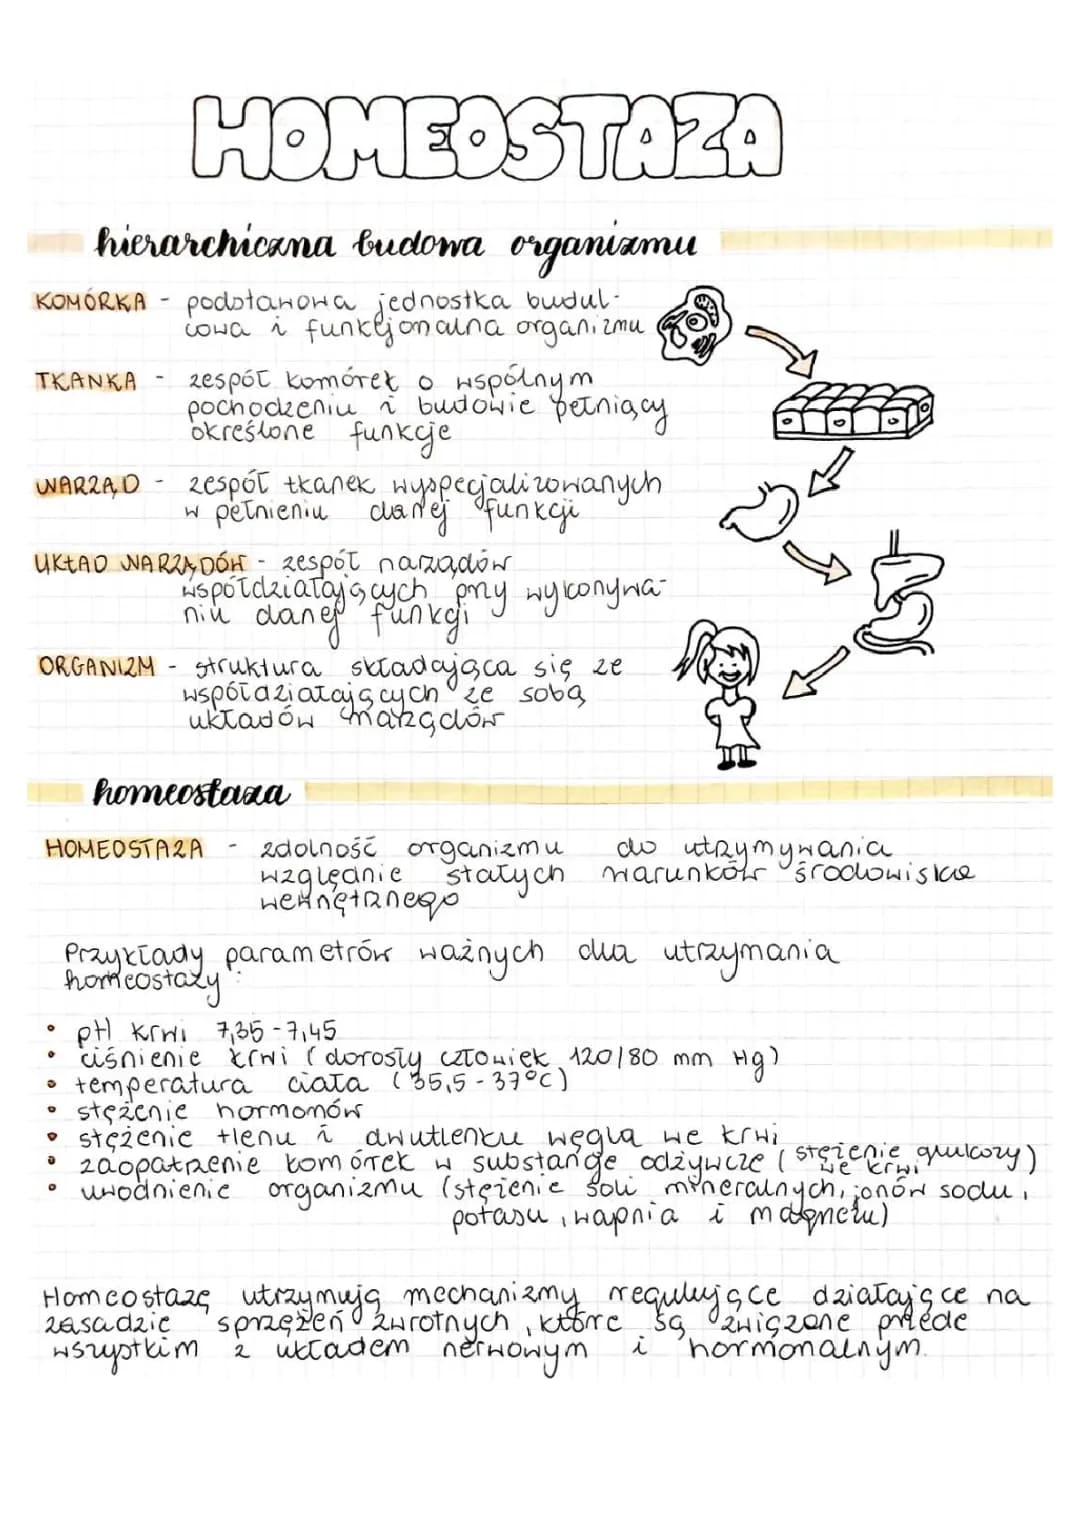 HOMEOSTAZA
hierarchiczna budowa organizmu
KOMÓRKA - podstawowa jednostka budul-
cowa i funkcjonalna organizmu
TKANKA - zespół komórek o wspólnym
pochodzeniu i budowie pełniący
określone funkcje
NARZĄD - zespół tkanek wyspecjalizowanych
w pełnieniu danej funkcji
UKŁAD NARZĄDÓW - zespół narządów
współdziałających przy wykonywa-
niu danej funkcji
ORGANIZM - struktura składająca się ze
współdziałających ze sobą
układów narządów
homeostaza
HOMEOSTAZA - zdolność organizmu do utrzymywania
względnie stałych warunków środowiska
wewnętrznego
Przykłady parametrów ważnych dla utrzymania
homeostazy:
• pH krwi 7,35-7,45
• ciśnienie krwi (dorosły człowiek 120/80 mm Hg)
• temperatura ciała (35,5-37°C)
• stężenie hormonów
• stężenie tlenu i dwutlenku węgla we krwi
• zaopatrzenie komórek w substancje odżywcze (stężenie glukozy we krwi)
• uwodnienie organizmu (stężenie soli mineralnych, jonów sodu,
potasu, wapnia i magnezu)
Homeostazę utrzymują mechanizmy regulujące działające na
zasadzie sprzężeń zwrotnych, które są związane przede
wszystkim z układem nerwowym i hormonalnym.